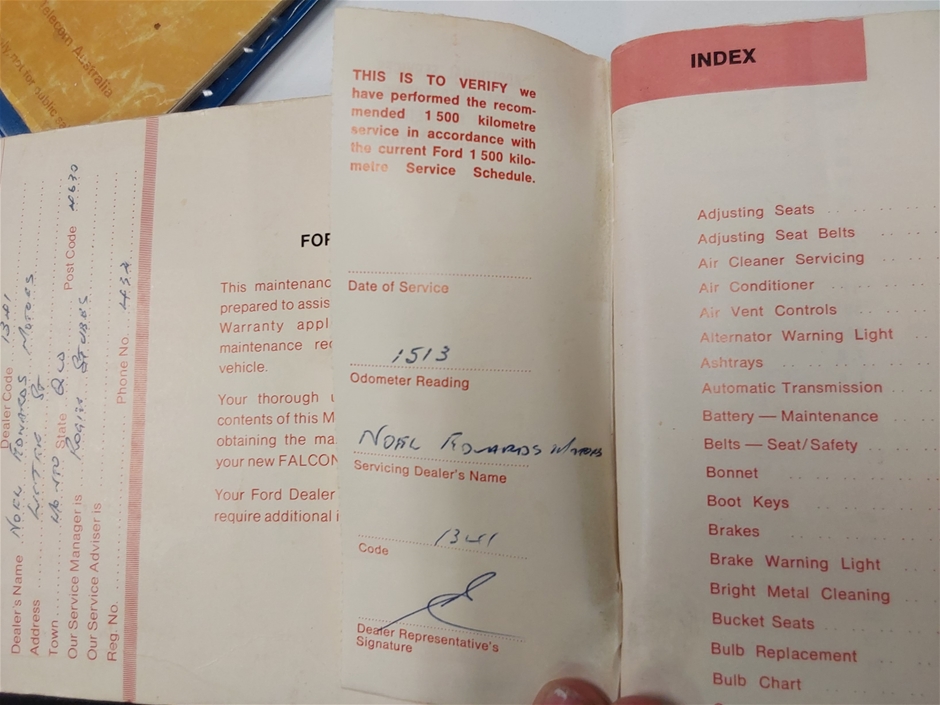 Telecom Australia
THIS IS TO VERIFY we
have performed the recom-
mended 1 500 kilometre
service in accordance with
the current Ford 1 500 kilo-
metre Service Schedule.
Date of Service
1513
Odometer Reading
NOEL EDWARDS MOTORS
Servicing Dealer's Name
1341
Code
Dealer Representative's
Signature
INDEX
Adjusting Seats
Adjusting Seat Belts
Air Cleaner Servicing
Air Conditioner
Air Vent Controls
Alternator Warning Light
Ashtrays
Automatic Transmission
Battery — Maintenance
Belts — Seat/Safety
Bonnet
Boot Keys
Brakes
Brake Warning Light
Bright Metal Cleaning
Bucket Seats
Bulb Replacement
Bulb Chart
FOR
This maintenanc
prepared to assis
Warranty appl
maintenance rec
vehicle.
Your thorough u
contents of this M
obtaining the ma
your new FALCON
Your Ford Dealer
require additional i
Dealer Code 1341
Dealer's Name NOEL EDWARDS MOTORS
Address
Town State QLD Post Code 4630
Our Service Manager is
Our Service Adviser is
Reg. No. Phone No.